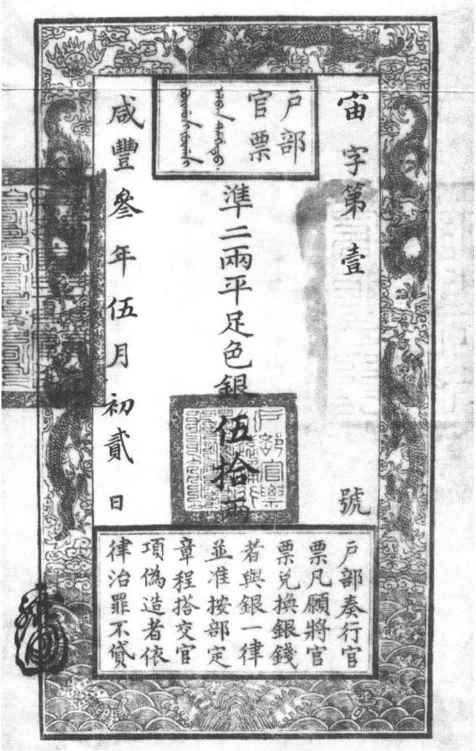 户部
官票
宙字第壹號
準二兩平足色銀伍拾兩
咸豐叄年伍月初貳日
户部奏行官
票凡願將官
票兌換銀錢
者與銀一律
並准按部定
章程搭交官
項偽造者依
律治罪不貸